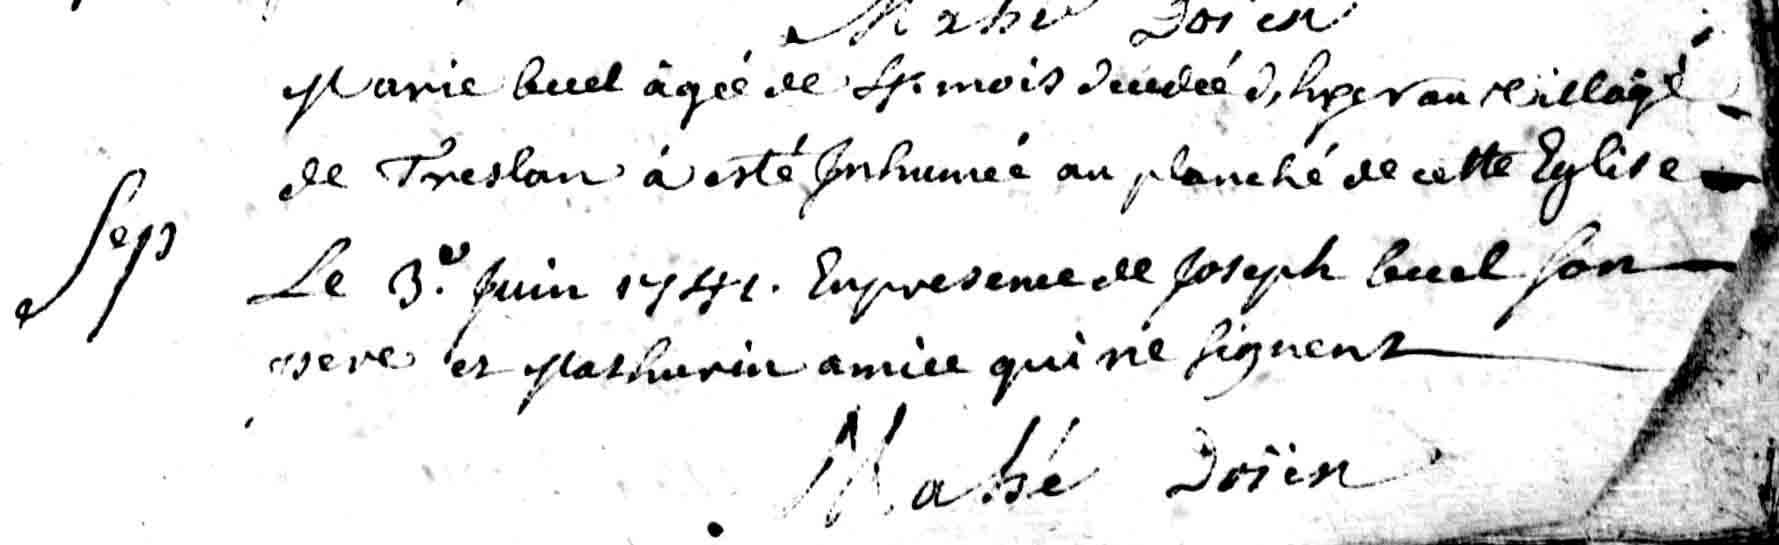 Mahé Doïen
Marie buel âgée de 4. mois decedée d'hyer au village
de Treslan á esté Jnhumée au planché de cette Eglise
Sep
Le 3.e Juin 1741. En presence de Joseph buel son
pere et Mathurin amice qui ne signent
Mahé Doïen